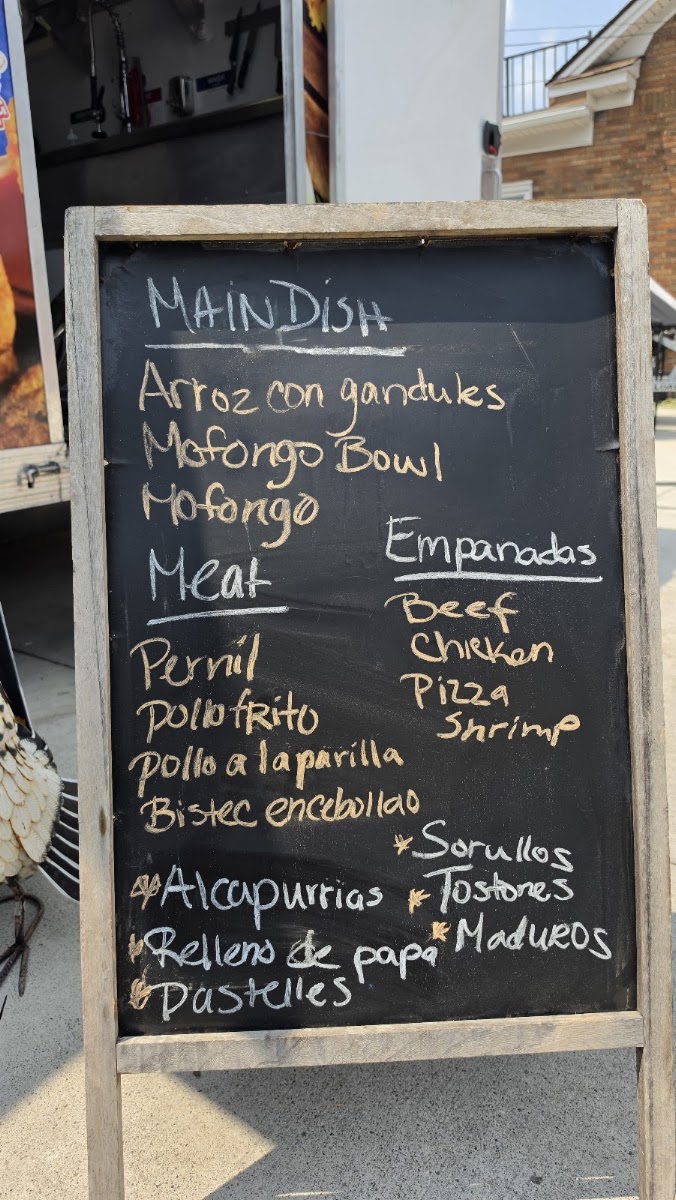 MAIN DISH
Arroz con gandules
Mofongo Bowl
Mofongo
Meat
Pernil
Pollo fRito
Pollo a la parilla
Bistec encebollao
Empanadas
Beef
Chicken
Pizza
Shrimp
Alcapurrias
Relleno de papa
Pastelles
Sorullos
Tostones
Maduros